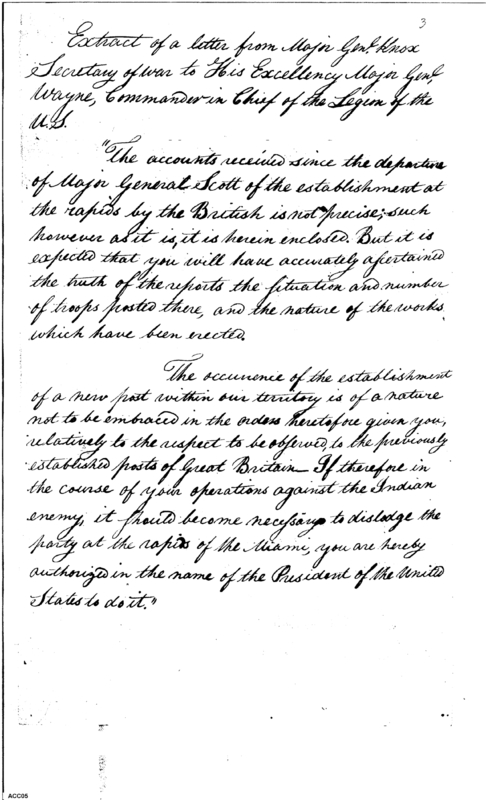 3
Extract of a letter from Major Genl. Knox
Secretary of War to His Excellency Major Genl.
Wayne, Commander in Chief of the Legion of the
U.S.
"The accounts received since the departure
of Major General Scott of the establishment at
the rapids by the British is not precise; such
however as it is, it is herein enclosed. But it is
expected that you will have accurately ascertained
the truth of the reports the situation and number
of troops posted there, and the nature of the works
which have been erected.
The occurrence of the establishment
of a new post within our territory is of a nature
not to be embraced in the orders heretofore given you,
relatively to the respect to be observed, to the previously
established posts of Great Britain— If therefore in
the course of your operations against the Indian
enemy, it should become necessary to dislodge the
party at the rapids of the Miami, you are hereby
authorized in the name of the President of the United
States to do it."
ACC05